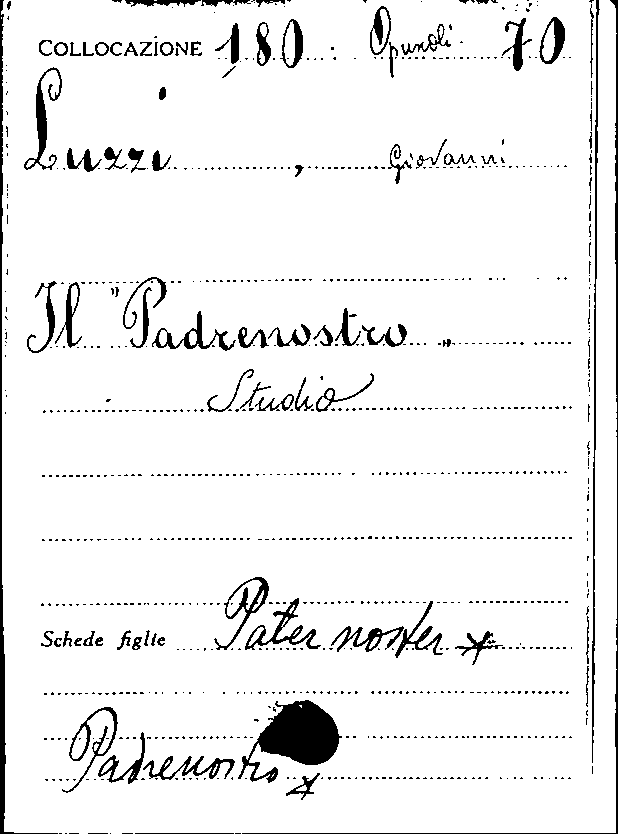 COLLOCAZIONE 180 Opuscoli 70
Luzzi, Giovanni
Il "Padrenostro"
Studio
Schede figlie Pater noster *
Padrenostro *